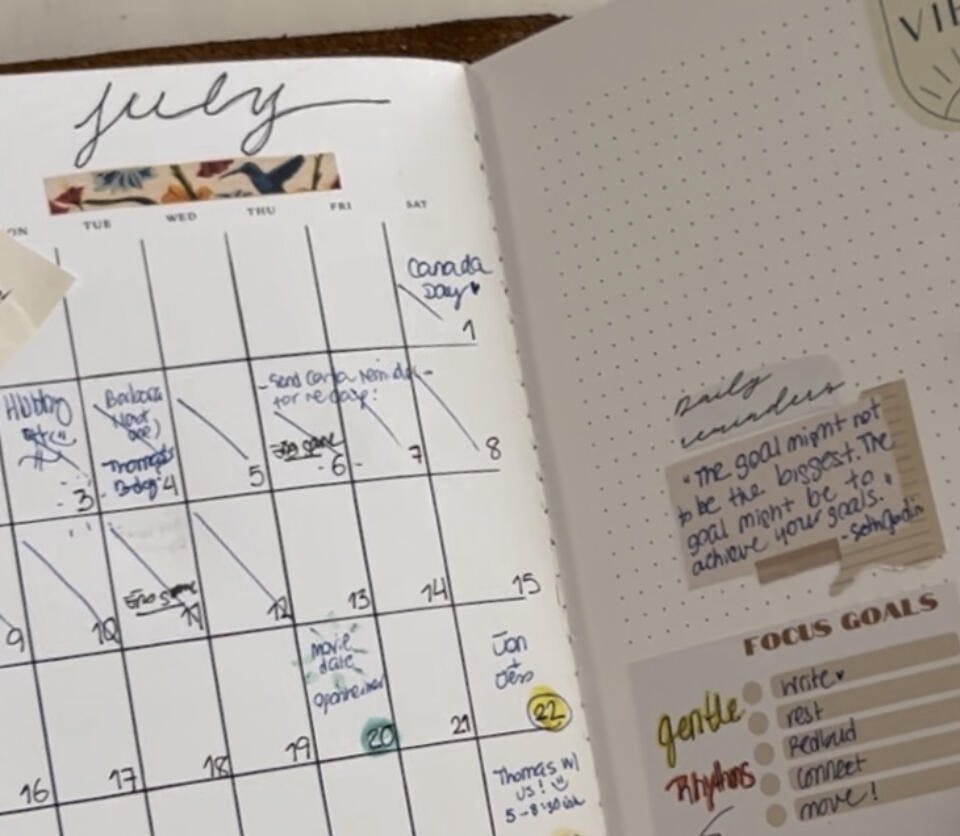 July
VI
TUE WED THU FRI SAT
Canada
Day
1
Hubby
3
Barbara
Thomas
4
5
- Send
for
6
7
8
9
10
11
12
13
14
15
16
17
18
19
movie
date
20
21
Jon
+
Jess
22
Thomas w/
us!
5-8:30ish
Daily
reminders
"The goal might not
to be the biggest. The
goal might be to
achieve your goals."
- Seth Godin
FOCUS GOALS
gentle
Rhythms
write
rest
Redbud
connect
move!